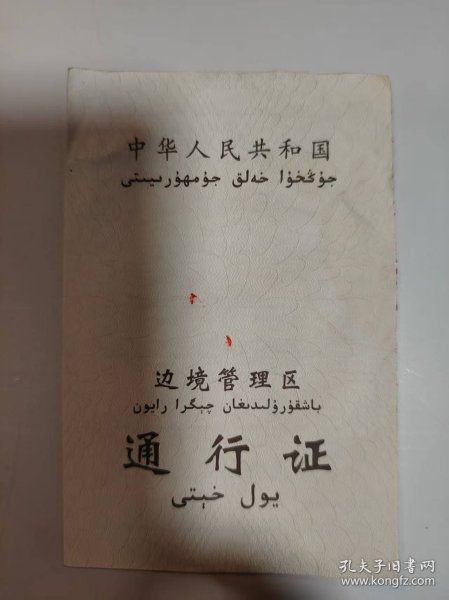 中华人民共和国
جۇڭخۇا خەلق جۇمھۇرىيىتى
边境管理区
باشقۇرۇلىدىغان چېگرا رايون
通行证
يول خېتى
孔夫子旧书网
www.kongfz.com